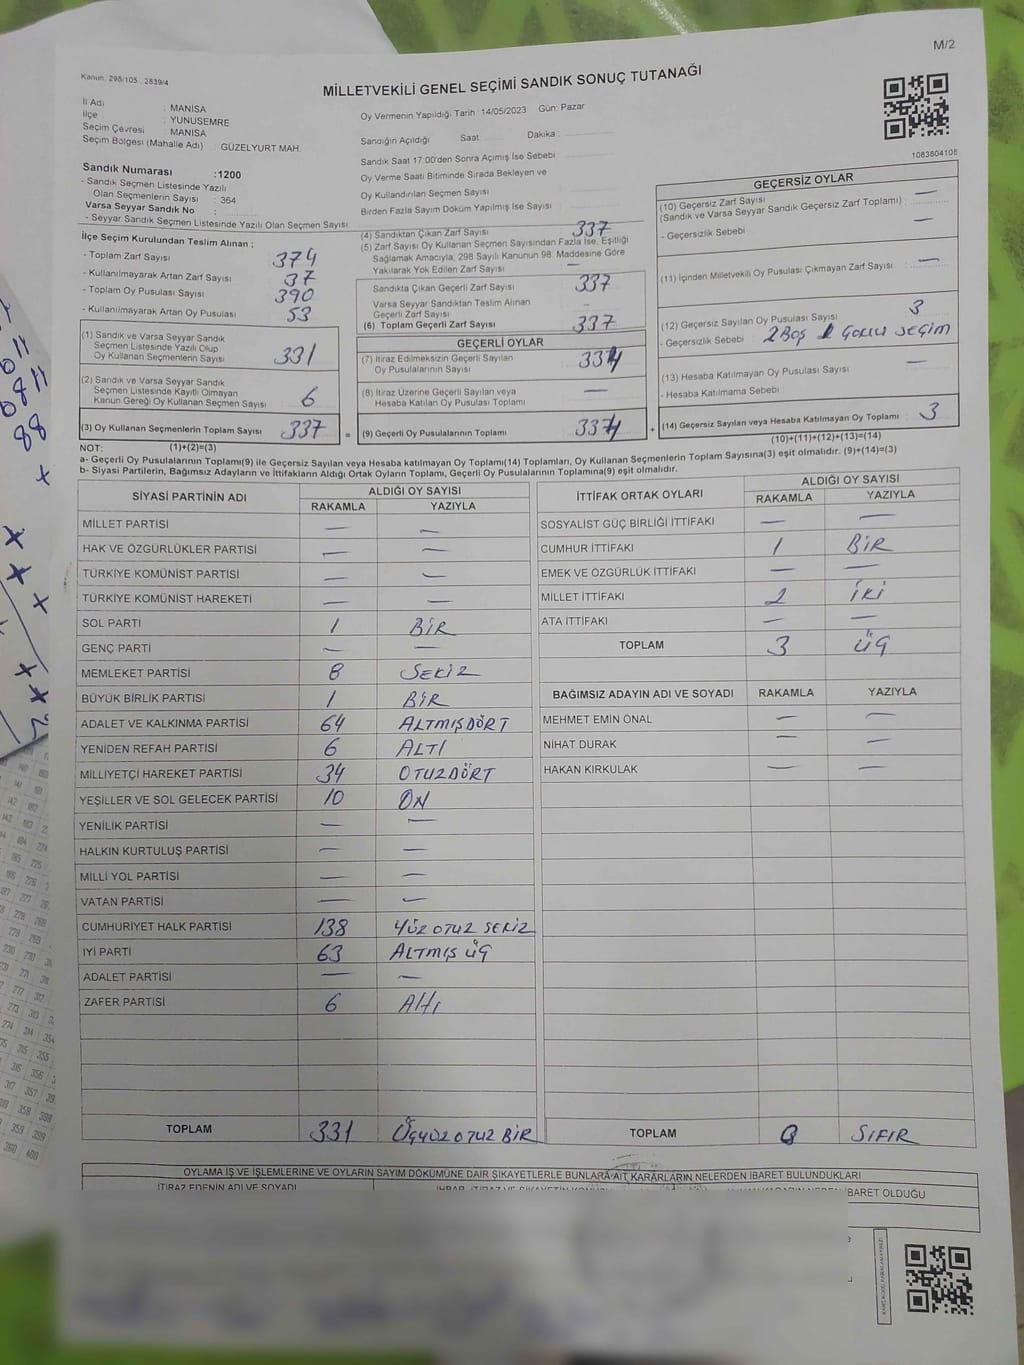 M/2
Kanun: 298/105 , 2839/4
MİLLETVEKİLİ GENEL SEÇİMİ SANDIK SONUÇ TUTANAĞI
İl Adı : MANİSA
İlçe : YUNUSEMRE
Seçim Çevresi : MANİSA
Seçim Bölgesi (Mahalle Adı) : GÜZELYURT MAH.
Oy Vermenin Yapıldığı Tarih :14/05/2023 Gün: Pazar
Sandığın Açıldığı Saat Dakika :
Sandık Saat 17:00'den Sonra Açımış İse Sebebi
Oy Verme Saati Bitiminde Sırada Bekleyen ve
Oy Kullandırılan Seçmen Sayısı
Birden Fazla Sayım Döküm Yapılmış İse Sayısı
1083804108
Sandık Numarası :1200
- Sandık Seçmen Listesinde Yazılı
Olan Seçmenlerin Sayısı : 364
Varsa Seyyar Sandık No :
- Seyyar Sandık Seçmen Listesinde Yazılı Olan Seçmen Sayısı
İlçe Seçim Kurulundan Teslim Alınan ;
- Toplam Zarf Sayısı 374
- Kullanılmayarak Artan Zarf Sayısı 37
- Toplam Oy Pusulası Sayısı 390
- Kullanılmayarak Artan Oy Pusulası 53
(1) Sandık ve Varsa Seyyar Sandık
Seçmen Listesinde Yazılı Olup
Oy Kullanan Seçmenlerin Sayısı 331
(2) Sandık ve Varsa Seyyar Sandık
Seçmen Listesinde Kayıtlı Olmayan
Kanun Gereği Oy Kullanan Seçmen Sayısı 6
(3) Oy Kullanan Seçmenlerin Toplam Sayısı 337
(1)+(2)=(3)
(4) Sandıktan Çıkan Zarf Sayısı 337
(5) Zarf Sayısı Oy Kullanan Seçmen Sayısından Fazla İse, Eşitliği
Sağlamak Amacıyla, 298 Sayılı Kanunun 98. Maddesine Göre
Yakılarak Yok Edilen Zarf Sayısı —
Sandıkta Çıkan Geçerli Zarf Sayısı 337
Varsa Seyyar Sandıktan Teslim Alınan
Geçerli Zarf Sayısı -
(6) Toplam Geçerli Zarf Sayısı 337
GEÇERLİ OYLAR
(7) İtiraz Edilmeksizin Geçerli Sayılan
Oy Pusulalarının Sayısı 334
(8) İtiraz Üzerine Geçerli Sayılan veya
Hesaba Katılan Oy Pusulası Toplamı —
= (9) Geçerli Oy Pusulalarının Toplamı 334 +
GEÇERSİZ OYLAR
(10) Geçersiz Zarf Sayısı —
(Sandık ve Varsa Seyyar Sandık Geçersiz Zarf Toplamı) :
- Geçersizlik Sebebi —
(11) İçinden Milletvekili Oy Pusulası Çıkmayan Zarf Sayısı : —
(12) Geçersiz Sayılan Oy Pusulası Sayısı 3
- Geçersizlik Sebebi 2 BOŞ 1 ÇOKLU SEÇİM
(13) Hesaba Katılmayan Oy Pusulası Sayısı —
- Hesaba Katılmama Sebebi
(14) Geçersiz Sayılan veya Hesaba Katılmayan Oy Toplamı : 3
(10)+(11)+(12)+(13)=(14)
NOT:
a- Geçerli Oy Pusulalarının Toplamı(9) ile Geçersiz Sayılan veya Hesaba katılmayan Oy Toplamı(14) Toplamları, Oy Kullanan Seçmenlerin Toplam Sayısına(3) eşit olmalıdır. (9)+(14)=(3)
b- Siyasi Partilerin, Bağımsız Adayların ve İttifakların Aldığı Ortak Oyların Toplamı, Geçerli Oy Pusulalarının Toplamına(9) eşit olmalıdır.
SİYASİ PARTİNİN ADI ALDIĞI OY SAYISI
RAKAMLA YAZIYLA
MİLLET PARTİSİ — —
HAK VE ÖZGÜRLÜKLER PARTİSİ — —
TÜRKİYE KOMÜNİST PARTİSİ — —
TÜRKİYE KOMÜNİST HAREKETİ — —
SOL PARTİ 1 BİR
GENÇ PARTİ — —
MEMLEKET PARTİSİ 8 SEKİZ
BÜYÜK BİRLİK PARTİSİ 1 BİR
ADALET VE KALKINMA PARTİSİ 64 ALTMIŞDÖRT
YENİDEN REFAH PARTİSİ 6 ALTI
MİLLİYETÇİ HAREKET PARTİSİ 34 OTUZDÖRT
YEŞİLLER VE SOL GELECEK PARTİSİ 10 ON
YENİLİK PARTİSİ — —
HALKIN KURTULUŞ PARTİSİ — —
MİLLİ YOL PARTİSİ — —
VATAN PARTİSİ — —
CUMHURİYET HALK PARTİSİ 138 YÜZ OTUZ SEKİZ
İYİ PARTİ 63 ALTMIŞ ÜÇ
ADALET PARTİSİ — —
ZAFER PARTİSİ 6 Altı
TOPLAM 331 ÜÇYÜZ OTUZ BİR
İTTİFAK ORTAK OYLARI ALDIĞI OY SAYISI
RAKAMLA YAZIYLA
SOSYALİST GÜÇ BİRLİĞİ İTTİFAKI — —
CUMHUR İTTİFAKI 1 BİR
EMEK VE ÖZGÜRLÜK İTTİFAKI — —
MİLLET İTTİFAKI 2 İKİ
ATA İTTİFAKI — —
TOPLAM 3 ÜÇ
BAĞIMSIZ ADAYIN ADI VE SOYADI RAKAMLA YAZIYLA
MEHMET EMİN ÖNAL — —
NİHAT DURAK — —
HAKAN KIRKULAK — —
TOPLAM 0 SIFIR
OYLAMA İŞ VE İŞLEMLERİNE VE OYLARIN SAYIM DÖKÜMÜNE DAİR ŞİKAYETLERLE BUNLARA AİT KARARLARIN NELERDEN İBARET BULUNDUKLARI
İTİRAZ EDENİN ADI VE SOYADI
İBARET OLDUĞU